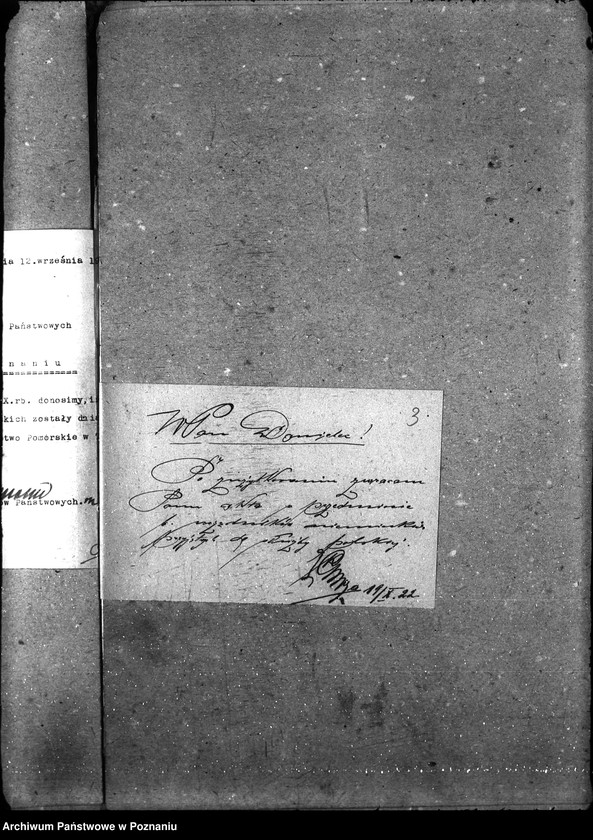 ia 12.września 19
Państwowych
n a n i u
=============
X.rb. donosimy, i
kich zostały dnie
two Pomorskie w
w Państwowych.
3.
WPan Danielec!
Po przejrzeniu zwracam
Panu akta o
b. urzędników niemieckich
przyjętych do służby polskiej.
19/X.22
Archiwum Państwowe w Poznaniu